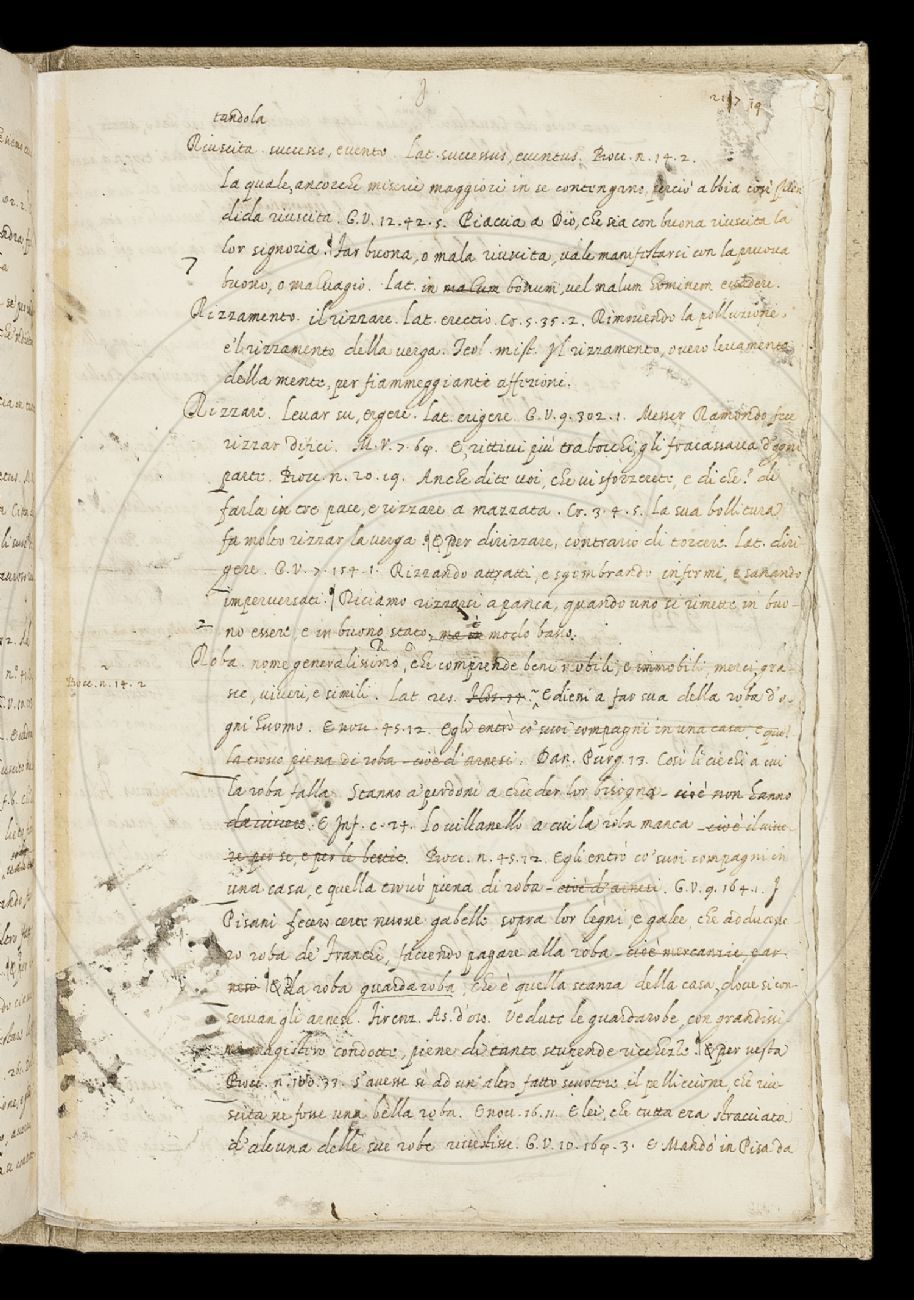 tandola
Riuscita. successo, evento. Lat. successus, eventus. Bocc. n. 14. 2.
La quale, ancorchè miserie maggiori in se contengano, perciò abbia così splen
dida riuscita. G.V. 12. 42. 5. Piaccia a Dio, che sia con buona riuscita la
lor signoria. Far buona, o mala riuscita, vale manifestarsi con la pruova
buono, o malvagio. Lat. in malum bonum, vel malum hominem evadere.
Rizzamento. il rizzare. Lat. erectio. Cr. 5. 35. 2. Rimovendo la polluzione,
e'l rizzamento della verga. Teol. mist. Il rizzamento, overo levamento
della mente, per fiammeggianti affezioni.
Rizzare. Levar su, ergere. Lat. erigere. G.V. 9. 302. 1. Messer Ramondo fece
rizzar difici. M.V. 7. 69. E, rittivi più trabocchi, gli fracassava d'ogni
parte. Bocc. n. 20. 19. Anche dite voi, che vi sforzerete, e di che? di
farla in tre pace, e rizzare a mazzata. Cr. 3. 4. 5. La sua bollitura
fa molto rizzar la verga. E per dirizzare, contrario di torcere. Lat. diri
gere. G.V. 7. 154. 1. Rizzando attratti, e sgombrando infermi, e sanando
imperversati. Diciamo rizzarsi a panca, quando uno si rimette in buo-
no essere, e in buono stato, ma in è modo basso.
Roba. nome generalissimo, che comprende beni mobili, e immobili, merci, gra-
Bocc. n. 14. 2
scie, viveri, e simili. Lat. res. E dieni a far sua della roba d'o-
gni huomo. E nov. 45. 12. Egli entrò co' suoi compagni in una casa, e quel
la trovò piena di roba cioè di arnesi. Dan. Purg. 13. Così li ciechi a cui
la roba falla Stanno a' perdoni a chieder lor bisogna cioè non hanno
da vivere. E Inf. c. 24. Lo villanello a cui la roba manca cioè il vive-
re per se, e per le bestie. Bocc. n. 45. 12. Egli entrò co' suoi compagni in
una casa, e quella trovò piena di roba cioè d'arnesi. G.V. 9. 164. 1. I
Pisani fecero certe nuove gabelle sopra lor legni, e galee, che adducesse-
ro roba de' Franchi, faccendo pagare alla roba cioè mercanzie, e ar
nesi. Da roba guardaroba, che è quella stanza della casa, dove si con-
servan gli arnesi. Firenz. As. d'oro. Vedute le guardarobe, con grandissi-
mo magistero condotte, piene di tante stupende ricchezze. E per vesta
Bocc. n. 100. 33. s'avesse si ad un altro fatto scuotere il pelliccione, che riu-
scita ne fosse una bella roba. E nov. 16. 11. E lei, che tutta era stracciata
d'alcuna delle sue robe rivestisse. G.V. 10. 169. 3. E Mandò in Pisa da